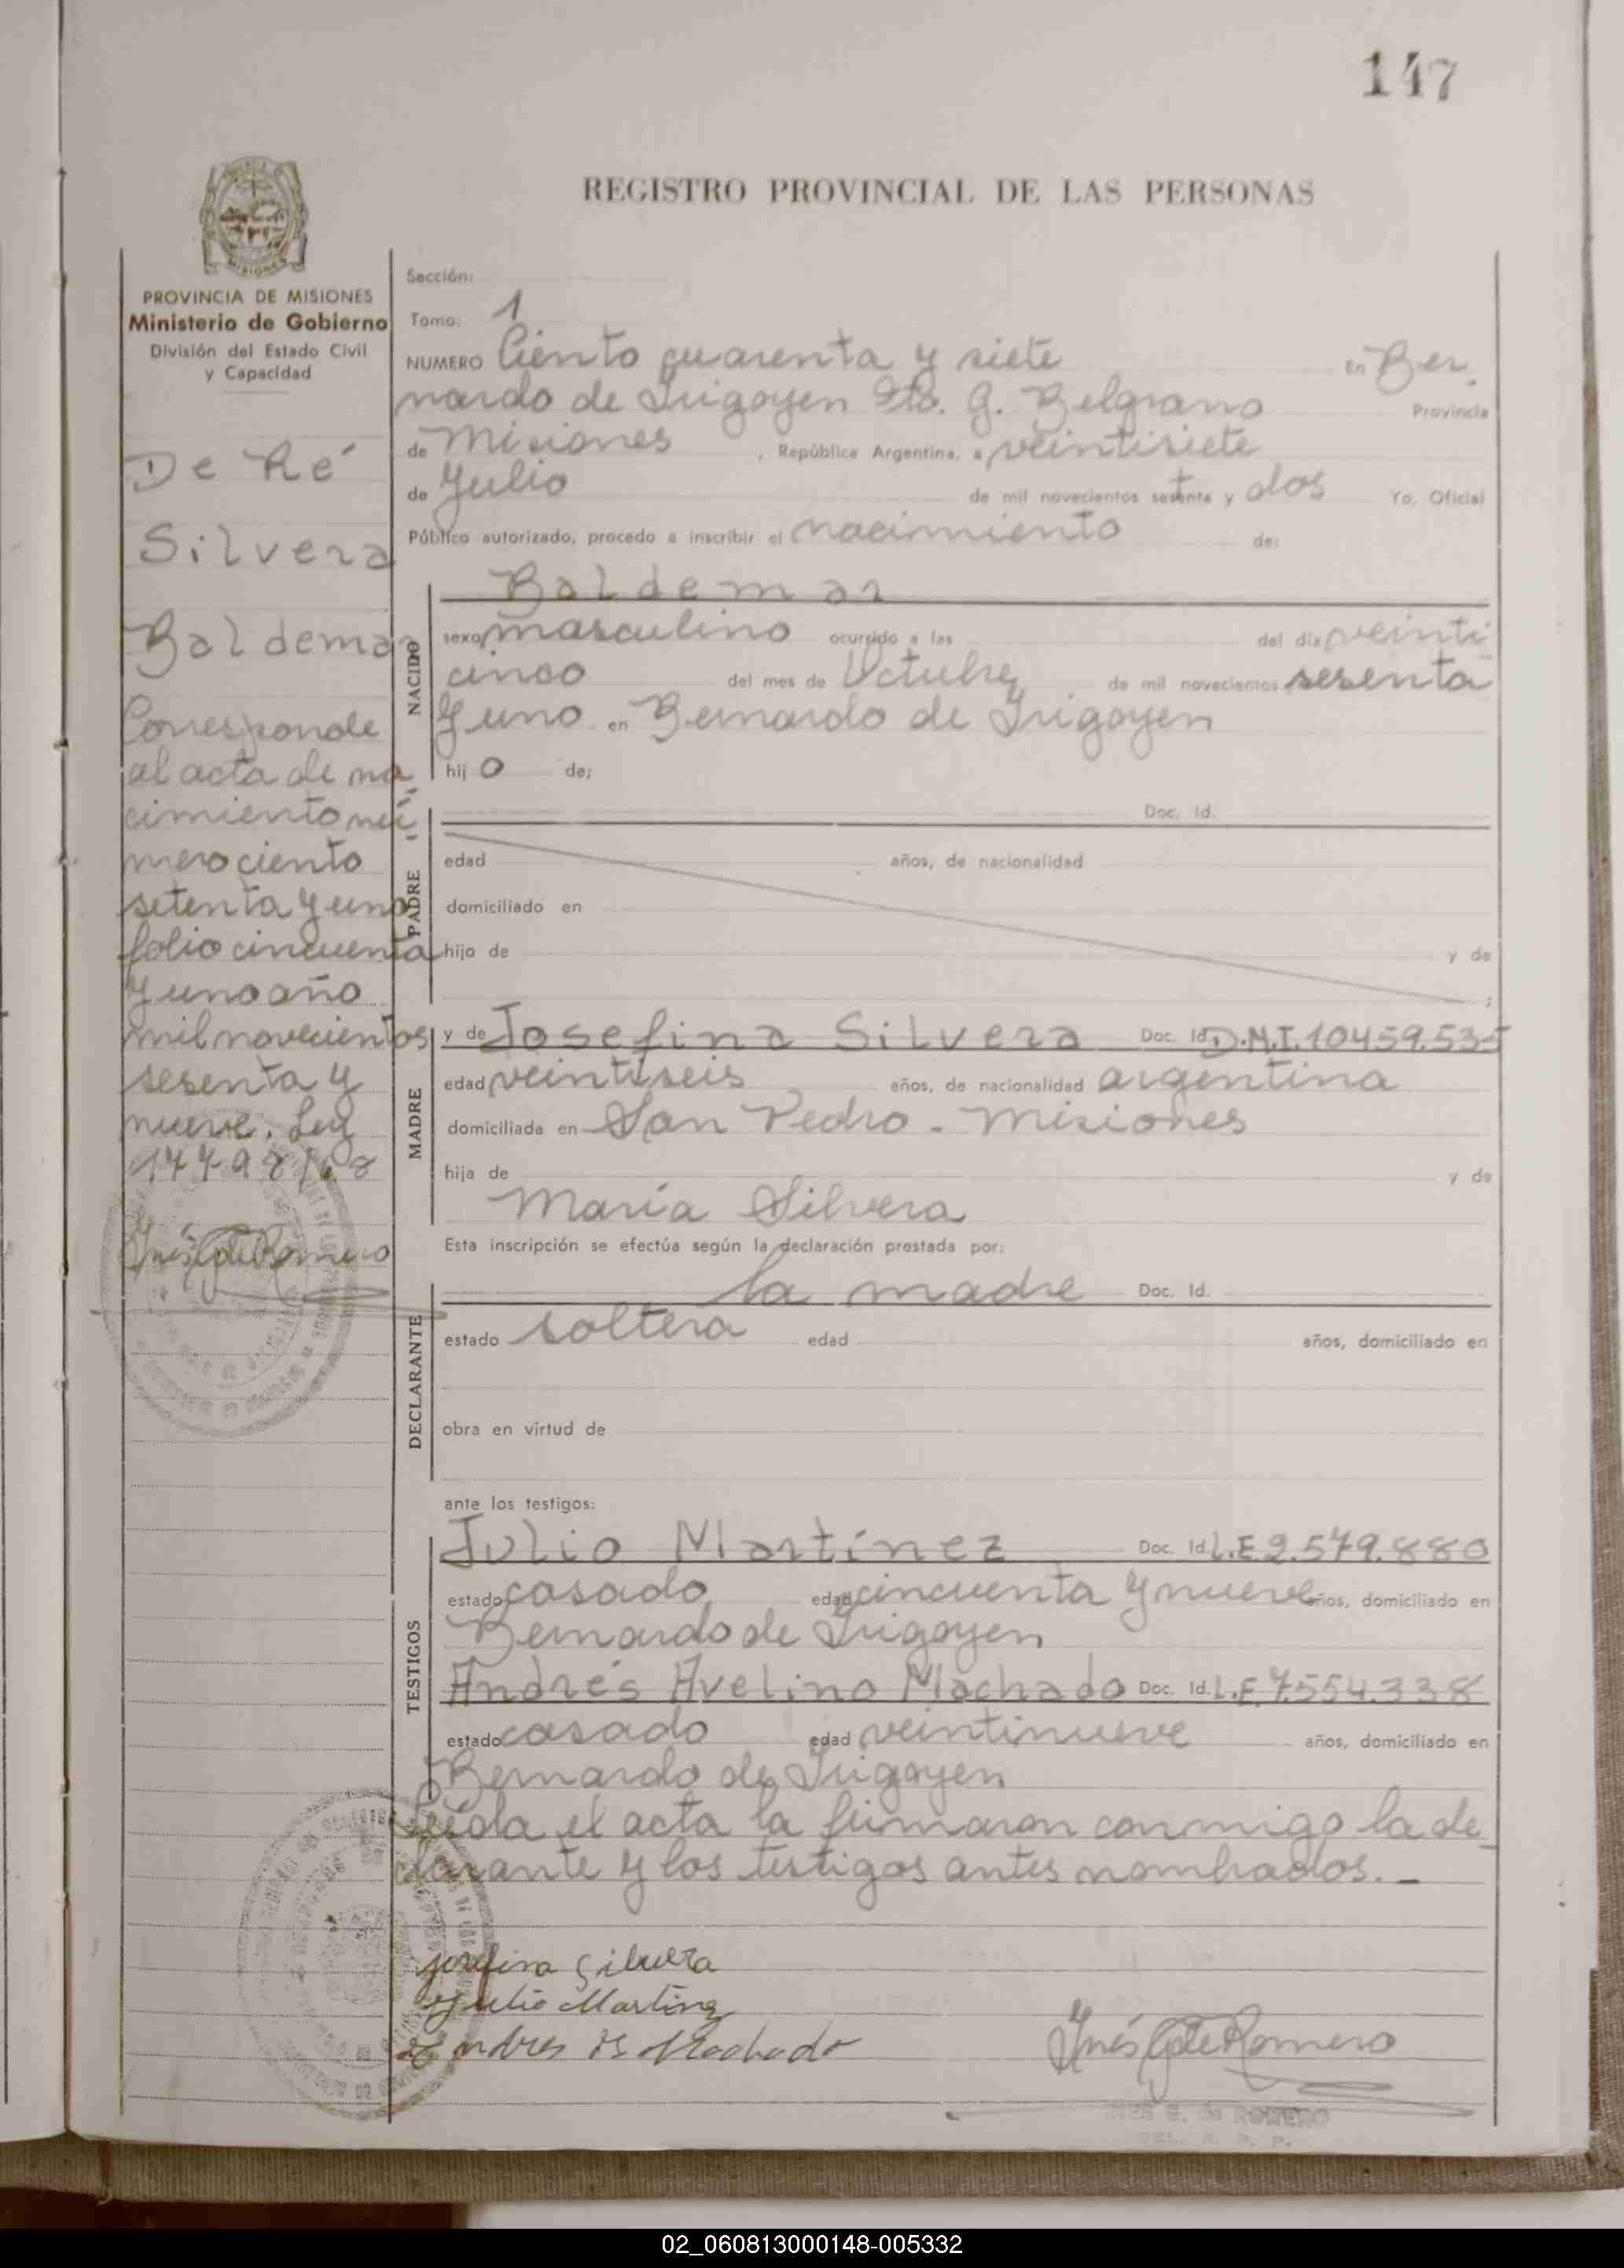 147
REGISTRO PROVINCIAL DE LAS PERSONAS
PROVINCIA DE MISIONES
Ministerio de Gobierno
División del Estado Civil
y Capacidad
De Ré
Silvera
Baldemar
Corresponde
al acta de na
cimiento nú
mero ciento
setenta y uno
folio cincuenta
y uno año
mil novecientos
sesenta y
nueve. Ley
Inés G de Romero
Sección:
Tomo: 1
NUMERO Ciento cuarenta y siete En Ber
nardo de Irigoyen Dto. G. Belgrano Provincia
de Misiones, República Argentina, a veintisiete
de Julio de mil novecientos setenta y dos Yo, Oficial
Público autorizado, procedo a inscribir el nacimiento de:
NACIDO
Baldemar
sexo masculino ocurrido a las del día veinti
cinco del mes de Octubre de mil novecientos sesenta
y uno en Bernardo de Irigoyen
hijo de;
PADRE
Doc. Id.
edad años, de nacionalidad
domiciliado en
hijo de y de
;
MADRE
y de Josefina Silvera Doc. Id. D.N.I. 10459.535
edad veintiseis años, de nacionalidad argentina
domiciliada en San Pedro - Misiones
hija de y de
María Silvera
Esta inscripción se efectúa según la declaración prestada por:
DECLARANTE
la madre Doc. Id.
estado soltera edad años, domiciliado en
obra en virtud de
ante los testigos:
TESTIGOS
Julio Martínez Doc. Id. L.E 2.579.880
estado casado edad cincuenta y nueve años, domiciliado en
Bernardo de Irigoyen
Andrés Avelino Machado Doc. Id. L.E 7.554.338
estado casado edad veintinueve años, domiciliado en
Bernardo de Irigoyen
Leída el acta la firmaron conmigo la de
clarante y los testigos antes nombrados. _
Josefina Silvera
Julio Martinez
Andres A Machado
Inés G de Romero
INES G. de ROMERO
DEL. R. P. P.
02_060813000148-005332